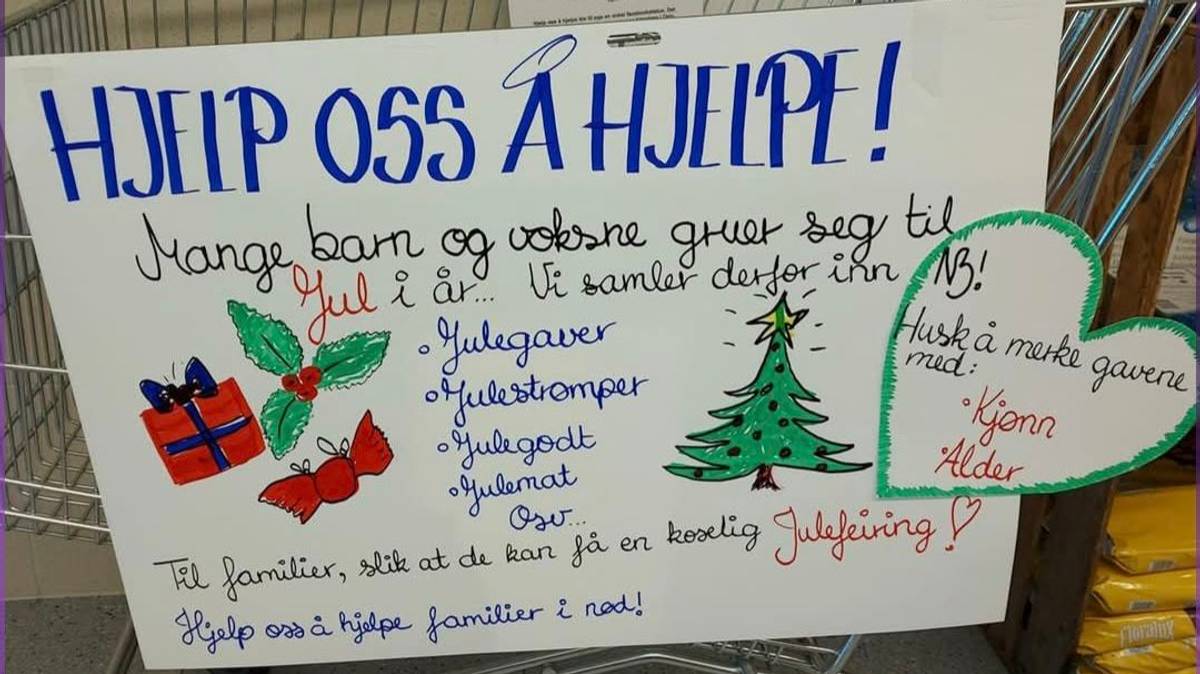 HJELP OSS Å HJELPE!
Mange barn og voksne gruer seg til
Jul i år... Vi samler derfor inn
• Julegaver
• Julestrømper
• Julegodt
• Julemat
Osv...
NB!
Husk å merke gavene
med:
• Kjønn
• Alder
Til familier, slik at de kan få en koselig Julefeiring!
Hjelp oss å hjelpe familier i nød!